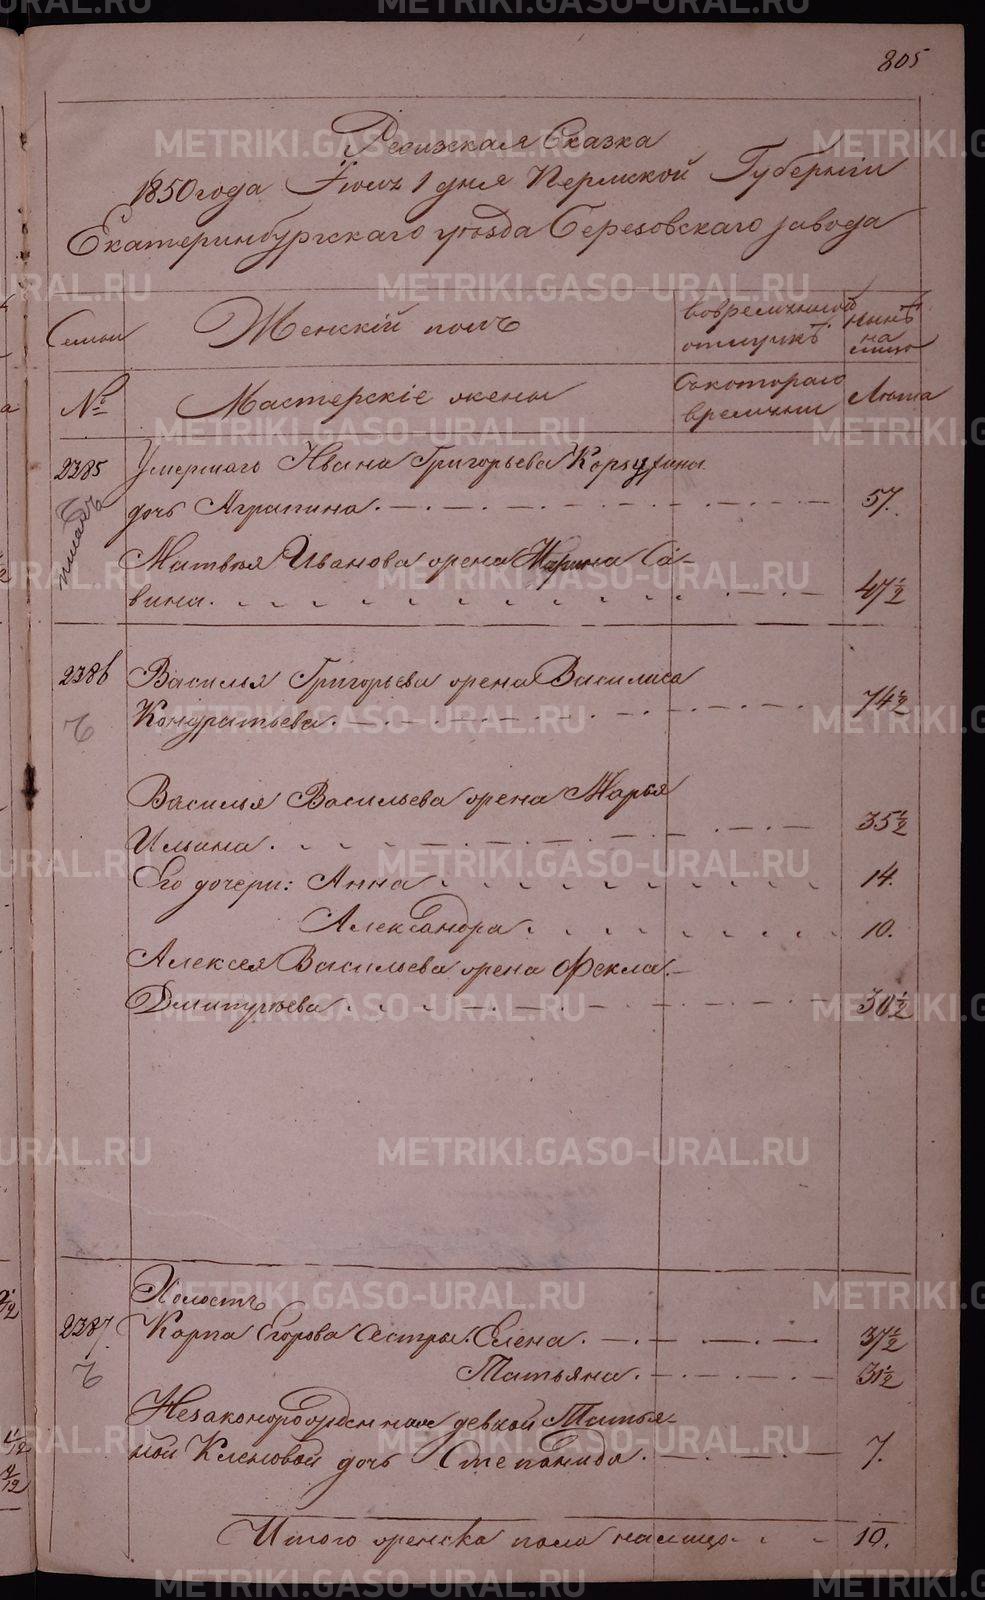 805
Ревизская Сказка
1850 года Июня 1 дня Пермской Губерніи
Екатеринбургскаго уѣзда Березовскаго завода
Семьи
Женскій полъ
вовременной
отлучкѣ
Нынѣ
на
лицо
№
Мастерскіе жены
Съкотораго
времени
Лѣта
2385
Умершаго Ивана Григорьева
дочь Аграпина
57.
Матвѣя Иванова жена Марина Са-
вина
47½
2386
Василья Григорьева жена Василиса
Кондратьева
74½
Василья Васильева жена Марья
Ильина
35½
Его дочери: Анна
14.
Александра
10.
Алексея Васильева жена Фекла
Дмитріева
30½
Холостъ
2387
Карпа Егорова Сестры: Елена
37½
Татьяна
31½
Незаконорожденная девкой Татья-
ной Кленовой дочь Степанида
7.
Итого женска пола налицо
10.
METRIKI.GASO-URAL.RU